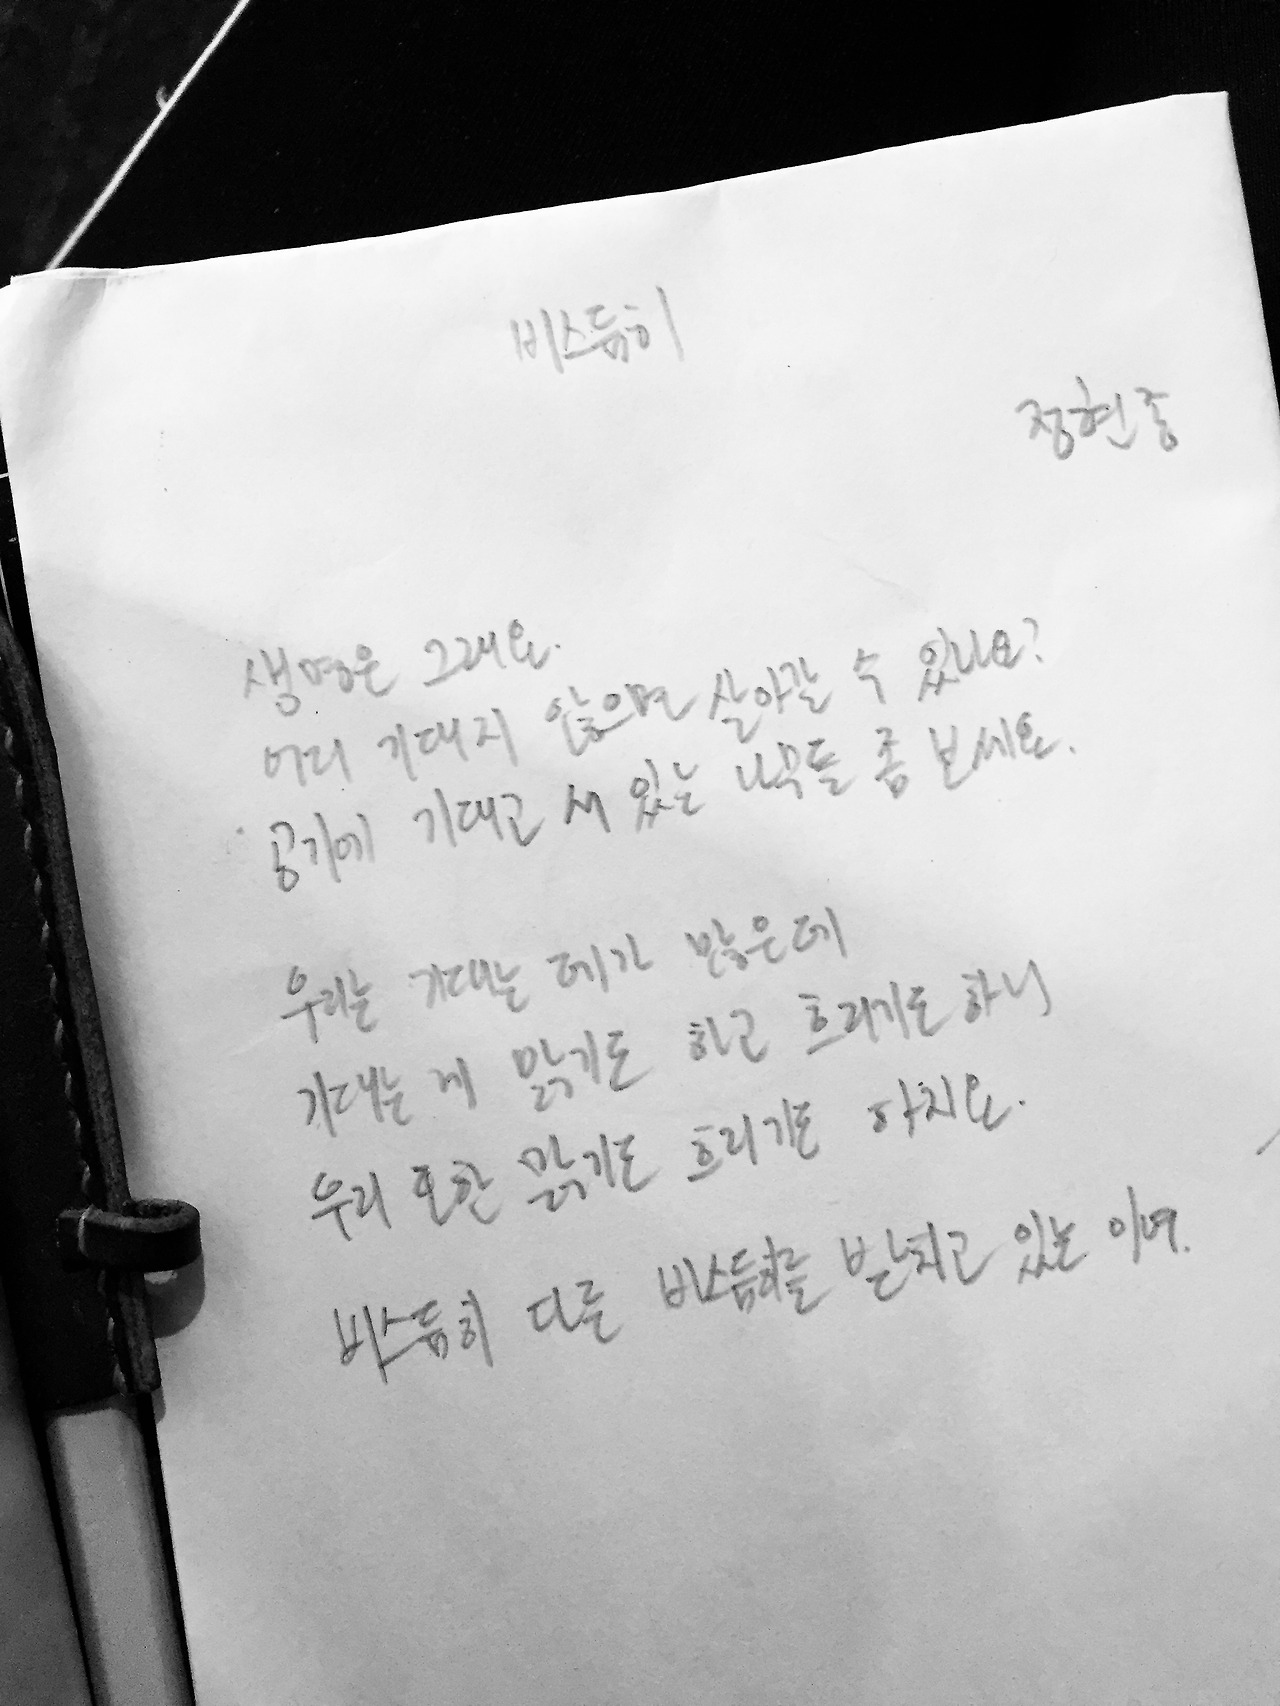 비스듬히
정현종
생명은 그래요.
어디 기대지 않으면 살아갈 수 있나요?
공기에 기대고 서 있는 나무들 좀 보세요.
우리는 기대는 데가 많은데
기대는 게 맑기도 하고 흐리기도 하니
우리 또한 맑기도 흐리기도 하지요.
비스듬히 다른 비스듬히를 받치고 있는 이여.